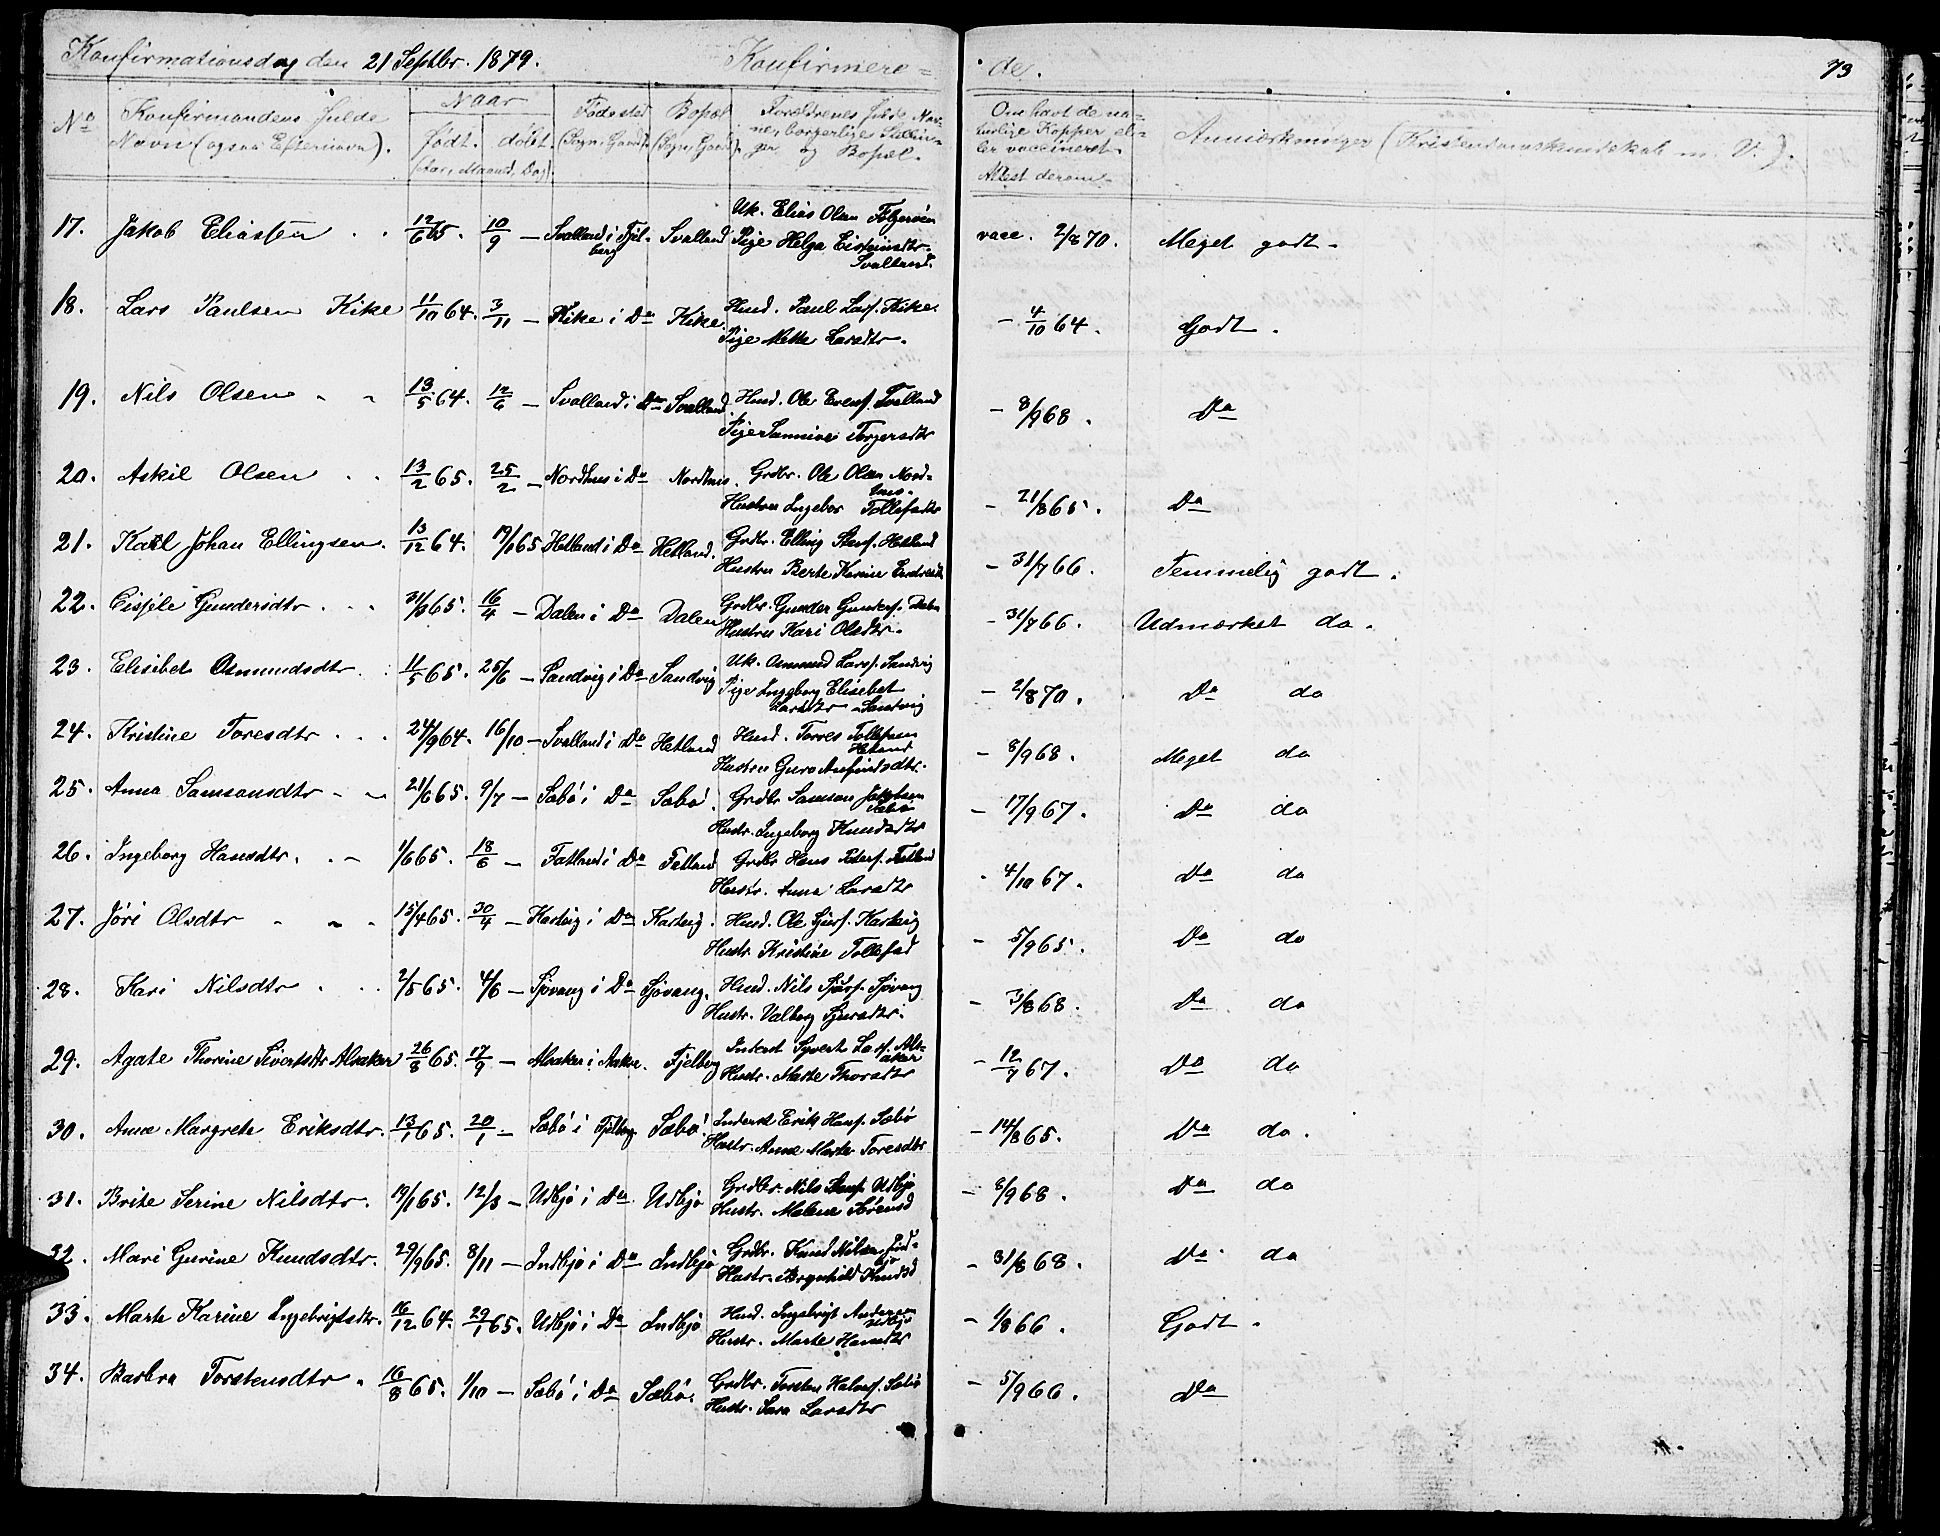 Konfirmationsdag den 21 Septbr. 1879. Konfirmere= de. 73
No Konfirmandens fulde Navn (ogsaa Efternavn). Naar født. døbt. (Aar, Maaned, Dag). Fødested (Sogn, Gaard). Bopæl (Sogn, Gaard). Forældrenes fulde Navne, borgerlige Stillinger og Bopæl. Om havt de naturlige Kopper eller vaccineret. Attest derom. Anmærkninger (Kristendomskundskab m. V.).
17. Jakob Eliassen 12/6 65. 10/9 — Svalland i Fjelberg Svalland Uk. Elias Olsen
Pige Helga Eisteinsdtr. Svalland. vacc. 2/8 70. Meget godt.
18. Lars Paulsen Kike 11/10 64. 3/11 — Kike i Do Kike Husd. Paul Lars. Kike.
Pige Mette Larsdtr. - 4/10 64. Godt.
19. Nils Olsen 13/5 64. 12/6 — Svalland i Do Svalland Husd. Ole Svalland
Pige Sannive Torgersdtr - 8/9 68. Do
20. Askil Olsen 13/2 65. 25/2 — Nordhus i Do Nordhus. Grdbr. Ole Olsen Nordhus.
Hustru Ingebor Tollefsdtr - 21/8 65. Do
21. Karl Johan Ellingsen. 13/12 64. 19/1 65 Hetland i Do Hetland. Grdbr. Elling Hetland
Hustru Berte Karine - 31/7 66. Temmelig godt.
22. Eisjele Gundersdtr 31/3 65. 16/4 — Dalen i Do Dalen Grdbr. Gunder Gunders. Dalen
Hustru Kari Olsdtr. - 31/7 66. Udmærket do.
23. Elisabet Osmundsdtr 11/5 65. 25/6 — Sandvig i Do Sandvig Uk. Osmund Lars. Sandvig
Pige Ingeborg Elisebet
Larsdtr Sandvig - 2/8 70. Do do
24. Kristine Toresdtr 24/9 64. 16/10 — Svalland i Do Hetland Husd. Torres Tollefsen
Hetland
Hustru Guro Anfindsdtr. - 8/9 68. Meget do
25. Anna Samsonsdtr 21/6 65. 9/7 — Sæbö i Do Sæbö. Grdbr Samson Jakobsen
Sæbö
Hustr. Ingeborg Knudsdtr - 17/9 67. Do do
26. Ingeborg Hansdtr. 1/6 65. 18/6 — Fatland i Do Fatland Grdbr Hans Peders. Fatland
Hustr. Anna Larsdtr - 4/10 67. Do do
27. Jöri Olsdtr 15/4 65. 30/4 — Karteig i Do Karteig. Husd. Ole Sjurs. Karteig
Hustr. Kristine Tollefsd - 5/9 65. Do do
28. Kari Nilsdtr 2/5 65. 4/6 — Sjövang i Do Sjövang. Husd. Nils Sjövang
Hustr. Valborg Sjursdtr. - 3/8 68. Do do
29. Agate Thorine Sivertsdtr Alsaker 26/8 65. 17/9 — Alsaker i Fjelberg Inderst Syvert Lars. Alsaker
Hustr. Marte Thorsdtr - 12/7 67. Do do
30. Anne Margrete Eriksdtr. 13/1 65. 20/1 — Sæbö i Fjelberg Sæbö. Inderst Erik Hans. Sæbö
Hustr. Anne Marte Toresdtr - 14/8 65. Do do.
31. Brite Serine Nilsdtr. 19/1 65. 12/3 — Udbjö i Do Udbjö Grdbr. Nils Udbjö
Hustr. Malene Sörensd - 8/9 68. Do do
32. Mari Gurine Knudsdtr. 29/9 65. 8/11 — Indbjö i Do Indbjö Grdbr. Knud Nilsen Indbjö
Hustr. Brynhild Knudsd - 31/8 68. Do do
33. Marte Karine Ingebrigtsdtr. 16/12 64. 29/1 65. Udbjö i Do Indbjö Husd. Ingebrigt Andersen
Udbjö
Hustr. Marte Hansdtr - 1/8 66. Godt.
34. Barbra Torstensdtr 16/8 65. 1/10 — Sæbö i Do Sæbö. Grdbr. Torsten Halvors. Sæbö
Hustr. Sara Larsdtr - 5/9 66. Do